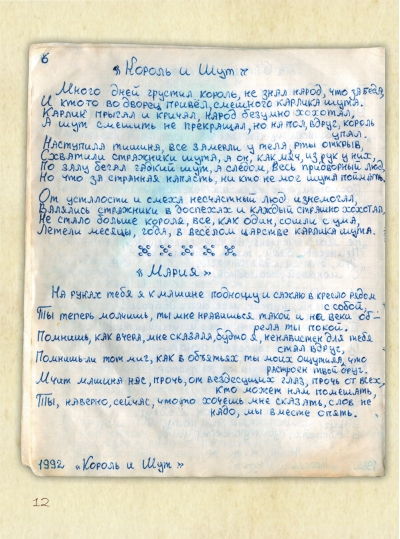 6
« Король и Шут »
Много дней грустил король, не знал народ, что за беда,
И кто то во дворец привёл, смешного карлика шута.
Карлик прыгал и кричал, народ безумно хохотал,
А шут смешить не прекращал, но на пол, вдруг, король
упал.
Наступила тишина, все замерли у тела, рты открыв,
Схватили стражники шута, а он, как мяч, из рук у них,
По залу бегал гадкий шут, а следом, весь придворный люд,
Но что за странная напасть, ни кто не мог шута поймать.
От усталости и смеха несчастный люд изнемогал,
Валялись стражники в доспехах и каждый страшно хохотал,
Не стало больше короля, все, как один, сошли с ума,
Летели месяцы, года, в весёлом царстве карлика шута.
« Мария »
На руках тебя я к машине подношу и сажаю в кресло рядом
с собой,
Ты теперь молчишь, ты мне нравишься такой и на веки об-
рела ты покой.
Помнишь, как вчера, мне сказала, будто я, ненавистен для тебя
стал вдруг,
Помнишь ли тот миг, как в объятьях ты моих ощутила, что
растроен твой друг.
Мчит машина нас, прочь, от вездесущих глаз, прочь от всех,
кто может нам помешать,
Ты, наверно, сейчас, что то хочешь мне сказать, слов не
надо, мы вместе опять.
1992 «Король и Шут»
12